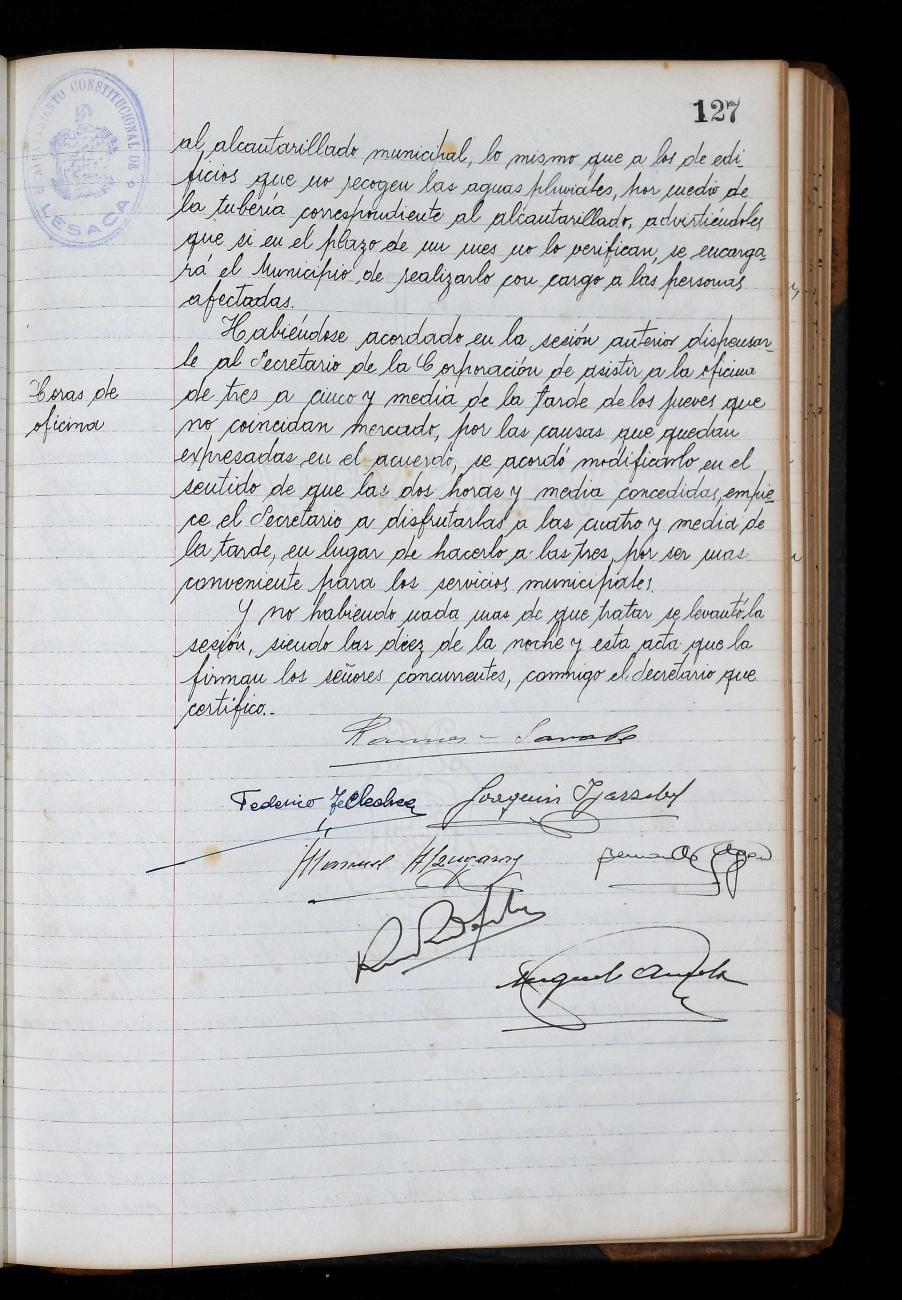 127
AYUNTAMIENTO CONSTITUCIONAL DE LESACA
al alcantarillado municipal, lo mismo que a los de edi-
ficios que no recogen las aguas pluviales, por medio de
la tubería correspondiente al alcantarillado, advirtiéndoles
que si en el plazo de un mes no lo verifican, se encarga-
rá el Municipio de realizarlo con cargo a las personas
afectadas.
Horas de
oficina
Habiéndose acordado en la sesión anterior dispensar-
le al Secretario de la Corporación de asistir a la oficina
de tres a cinco y media de la tarde de los jueves que
no coincidan mercado, por las causas que quedan
expresadas en el acuerdo, se acordó modificarlo en el
sentido de que las dos horas y media concedidas, empie-
ce el Secretario a disfrutarlas a las cuatro y media de
la tarde, en lugar de hacerlo a las tres, por ser mas
conveniente para los servicios municipales.
Y no habiendo nada mas de que tratar se levantó la
sesión, siendo las diez de la noche y esta acta que la
firman los señores concurrentes, conmigo el Secretario que
certifico.-
Federico
Joaquin
Manuel
Miguel